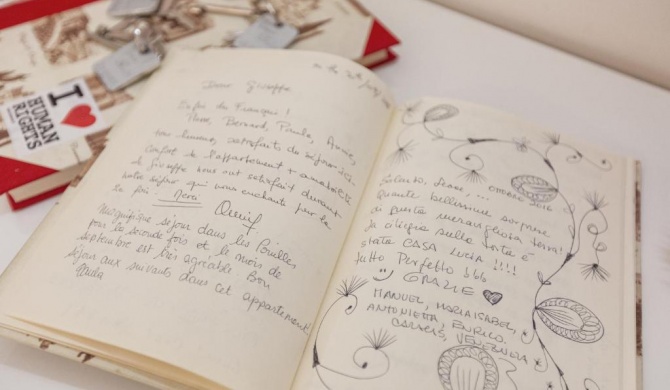 I ❤
HUMAN
RIGHTS
Dear Giuseppe
Enfin des Français !
Bernard, Paula, Annie,
satisfaits du séjour ici.
Confort de l'appartement + amabilité
de Giuseppe nous ont satisfait durant
notre séjour qui nous enchante pour la
Merci
Magnifique séjour dans les Pouilles
pour la seconde fois et le mois de
septembre est très agréable Bon
séjour aux suivants dans cet appartement!
Salento, ottobre 2016
Quante bellissime sorprese
di questa meravigliosa terra!
La ciliegia sulla torta è
stata CASA LUCIA !!!!
Tutto Perfetto
GRAZIE
MANUEL, MARIA ISABEL,
ANTONIETTA, ENRICO.
CARACAS, VENEZUELA